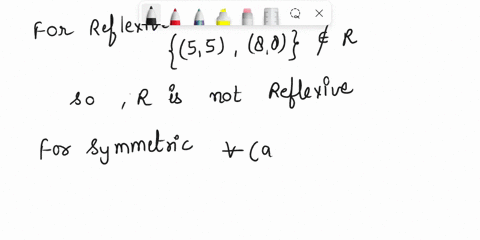 For Reflexive
{(5,5), (8,8)} ∉ R
so, R is not Reflexive
For symmetric ∀ (a